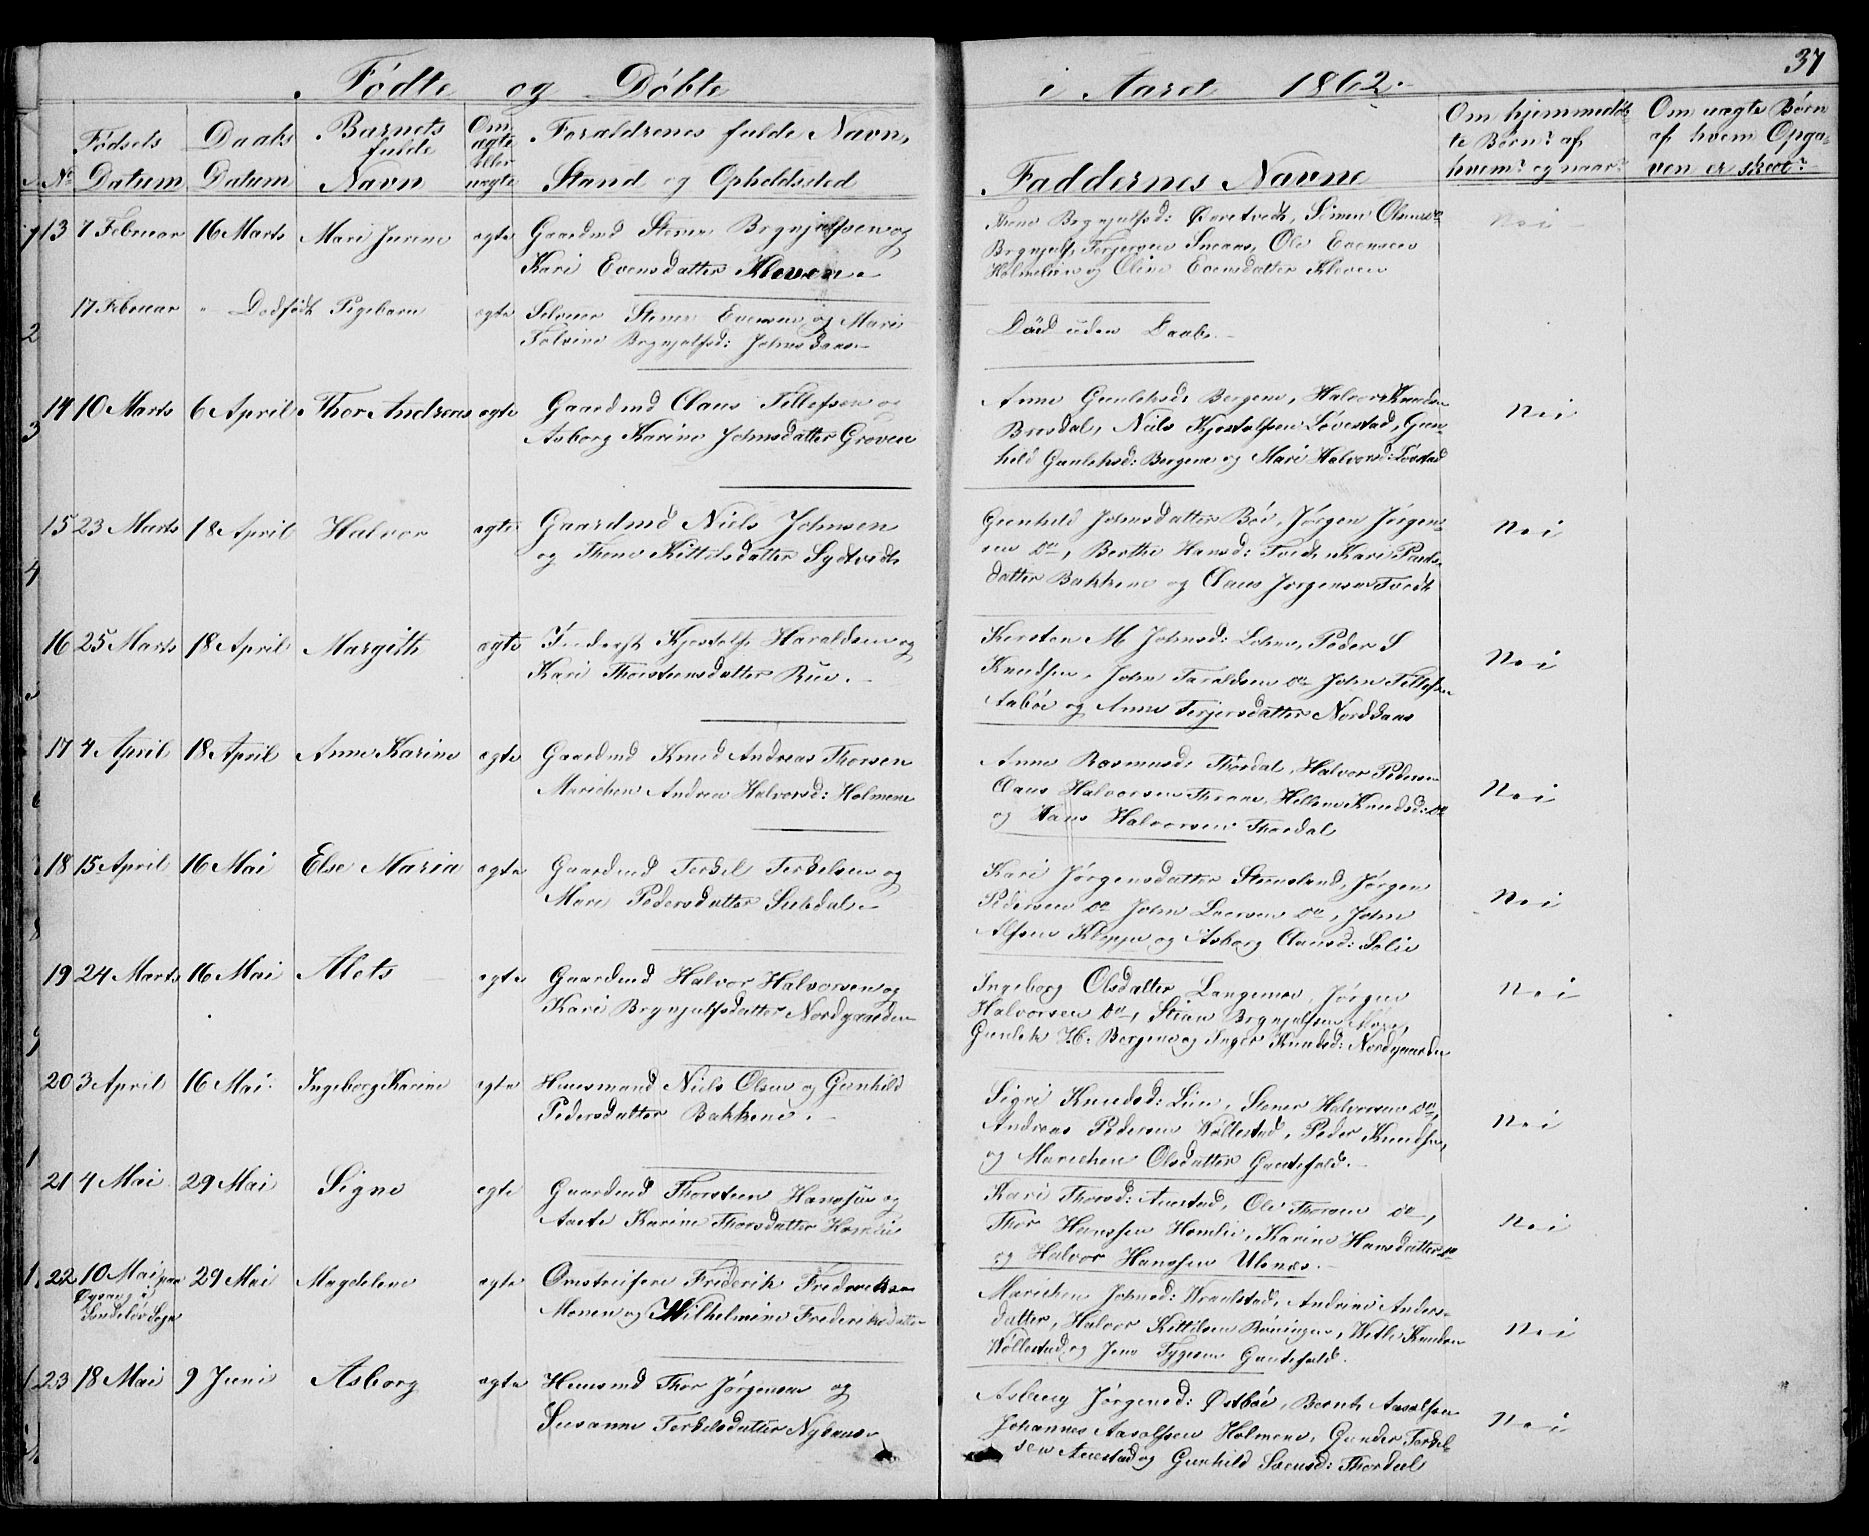 37
Fødte og Døbte i Aaret 1862.
No Fødsels Datum
Daabs Datum
Barnets fulde Navn
Om ægte eller uægte
Forældrenes fulde Navn,
Stand og Opholdssted
Faddernes Navne
Om hjemmedøb-
te Børn? af
hvem? og naar?
Om uægte Børn
af hvem Opga-
ven er skeet?
13 7 Februar 16 Marts Mari Jurine ægte Gaardmd Stener Brynjulfsen og
Kari Evensdatter Kleven.
Brynjulfsd: Simen Olsen do
Brynjulf Terjersen Snaas, Ole Evensen
Holmelien og Oline Evensdatter Kleven
Nei
17 Februar " Dødfødt Pigebarn ægte Selveier Stener Evensen og Mari
Tolvine Brynjulfsd:
Død uden Daab.
14 10 Marts 6 April Thor Andreas ægte Gaardmd Claus Tellefsen og
Asborg Karine Johnsdatter Groven
Anne Gunleksd: Bergene, Halvor Knudsen
Bresdal, Niels Kjostolfsen Løvestad, Gun-
hild Gunleksd: Bergene og Mari Halvorsd: Løvstad
Nei
15 23 Marts 18 April Halvor ægte Gaardmd Niels Johnsen
og Thone Kittilsdatter Sydtvedt
Gunhild Johnsdatter Bøe, Jørgen Jørgen-
sen do, Berthe Hansd: Tvedt, Kari Pauls-
datter Bakkene og Claus Jørgensen Tvedt
Nei
16 25 Marts 18 April Margith ægte Kjostolf Haraldsen og
Kari Thorstensdatter Rue.
Kersten M Johnsd: Peder S
Knudsen, John Taraldsen do John Tellefsen
Aabøe og Anne Terjersdatter Norddaas
Nei
17 4 April 18 April Anne Karine ægte Gaardmd Knud Andreas Thorsen
Marichen Andrea Halvorsd: Holmene
Anne Rasmusd: Thordal, Halvor Pedersen
Claus Halvorsen Thrane, Hellene Knudsd: do
og Hans Halvorsen Thordal
Nei
18 15 April 16 Mai Else Maria ægte Gaardmd Terkel Terkelsen og
Mari Pedersdatter
Kari Jørgensdatter Stensland, Jørgen
Pedersen do John Larsen do, John
Alfsen Kleppe og Asborg Clausd: Solie
Nei
19 24 Marts 16 Mai Alets ægte Gaardmd Halvor Halvorsen og
Kari Brynjulfsdatter Nordgaarden
Ingeborg Olsdatter Langemo, Jørgen
Halvorsen do, Steen Brynjulfsen Moe,
Gunlek H. Bergene og Inger Knudsd: Nordgaarden
Nei
20 3 April 16 Mai. Ingeborg Karine ægte Huusmand Niels Olsen og Gunhild
Pedersdatter Bakkene.
Sigri Knudsd: Lien, Stener Halvorsen do,
Andreas Pedersen Wøllestad, Peder Knudsen,
og Marichen Olsdatter Gautefald.
Nei
21 4 Mai 29 Mai Signe ægte Gaardmd Thorsteen Hanssen og
Aaste Karine Thorsdatter Homlie
Kari Thorsd: Anestad, Ole Thorsen do,
Thor Hanssen Homlie, Karine Hansdatter do
og Halvor Hanssen Ulsnæs.
Nei
22 10 Mai paa
Sundeløv Sogn
29 Mai Magdelene ægte Omstreifere Friderik Frederiksen
Monen og Wilhelmine Frederiksdatter
Marichen Johnsd: Wraalstad, Andrine Anders-
datter, Halvor Kittilsen Røningen, Wetle Knudsen
Wøllestad og Jens Tygesen Gautefald.
Nei
23 18 Mai 9 Juni Asborg ægte Huusmd Thor Jørgensen og
Susanne Terkelsdatter Nyhuus
Asborg Jørgensd: Østbøe, Bernt Aasolfsen
Johannes Aasolfsen Holmene, Gunder Terkel-
sen Anestad og Gunhild Svensd: Thordal
Nei